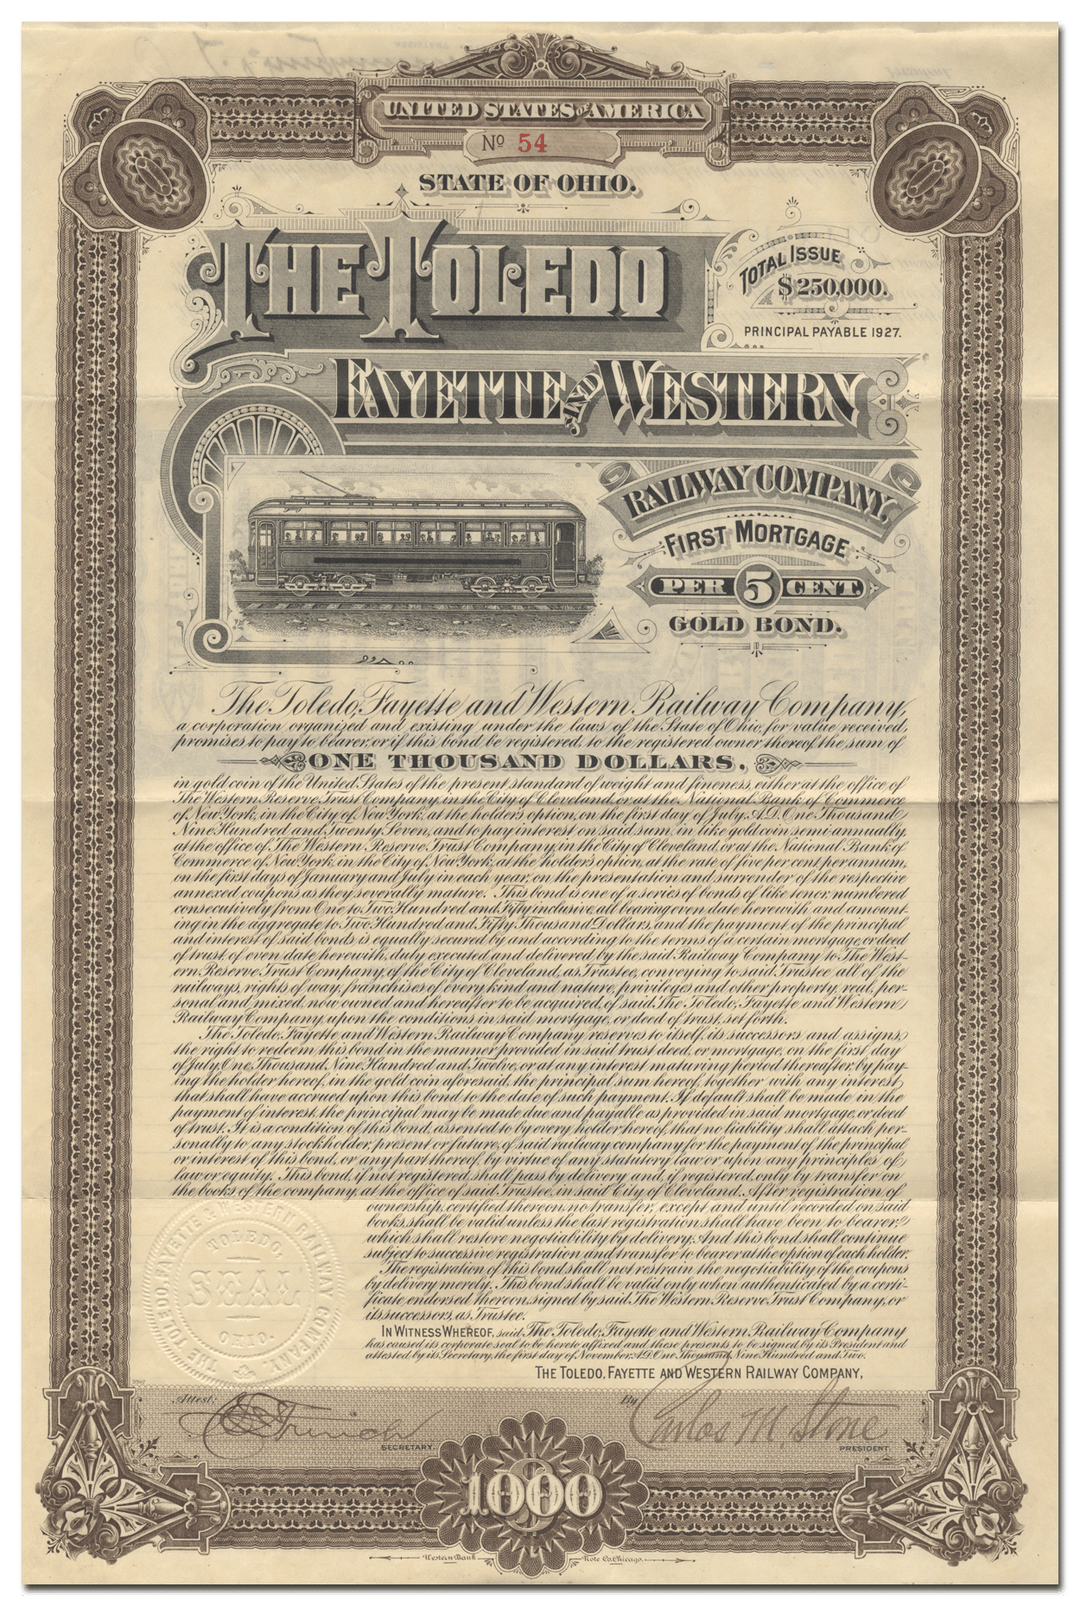 UNITED STATES OF AMERICA
No 54
STATE OF OHIO.
THE TOLEDO
TOTAL ISSUE
$250,000.
PRINCIPAL PAYABLE 1927.
FAYETTE AND WESTERN
RAILWAY COMPANY,
FIRST MORTGAGE
PER 5 CENT.
GOLD BOND.
The Toledo, Fayette and Western Railway Company,
a corporation organized and existing under the laws of the State of Ohio, for value received,
promises to pay to bearer, or if this bond be registered, to the registered owner thereof, the sum of
ONE THOUSAND DOLLARS,
in gold coin of the United States of the present standard of weight and fineness, either at the office of
The Western Reserve Trust Company, in the City of Cleveland, or at the National Bank of Commerce
of New York, in the City of New York, at the holders option, on the first day of July, A.D. One Thousand
Nine Hundred and Twenty Seven, and to pay interest on said sum, in like gold coin semi-annually,
at the office of The Western Reserve Trust Company, in the City of Cleveland, or at the National Bank of
Commerce of New York, in the City of New York, at the holders option, at the rate of five per cent per annum,
on the first days of January and July in each year, on the presentation and surrender of the respective
annexed coupons as they severally mature. This bond is one of a series of bonds of like tenor, numbered
consecutively from One to Two Hundred and Fifty inclusive, all bearing even date herewith and amount-
ing in the aggregate to Two Hundred and Fifty Thousand Dollars, and the payment of the principal
and interest of said bonds is equally secured by and according to the terms of a certain mortgage, or deed
of trust, of even date herewith, duly executed and delivered by the said Railway Company to The West-
ern Reserve Trust Company, of the City of Cleveland, as Trustee, conveying to said Trustee, all of the
railways, rights of way, franchises of every kind and nature, privileges and other property, real, per-
sonal and mixed, now owned and hereafter to be acquired, of said The Toledo, Fayette and Western
Railway Company, upon the conditions in said mortgage, or deed of trust, set forth.
The Toledo, Fayette and Western Railway Company reserves to itself, its successors and assigns,
the right to redeem this bond in the manner provided in said trust deed, or mortgage, on the first day
of July, One Thousand Nine Hundred and Twelve, or at any interest maturing period thereafter, by pay-
ing the holder hereof, in the gold coin aforesaid, the principal sum hereof, together with any interest
that shall have accrued upon this bond to the date of such payment. If default shall be made in the
payment of interest, the principal may be made due and payable as provided in said mortgage, or deed
of trust. It is a condition of this bond, assented to by every holder hereof, that no liability shall attach per-
sonally to any stockholder, present or future, of said railway company for the payment of the principal
or interest of this bond, or any part thereof, by virtue of any statutory law or upon any principles of
law or equity. This bond, if not registered, shall pass by delivery and, if registered, only by transfer on
the books of the company, at the office of said Trustee, in said City of Cleveland. After registration of
ownership, certified thereon, no transfer, except and until recorded on said
books, shall be valid unless the last registration shall have been to bearer,
which shall restore negotiability by delivery. And this bond shall continue
subject to successive registration and transfer to bearer at the option of each holder.
The registration of this bond shall not restrain the negotiability of the coupons
by delivery merely. This bond shall be valid only when authenticated by a certi-
ficate, endorsed thereon, signed by said The Western Reserve Trust Company, or
its successors, as Trustee.
IN WITNESS WHEREOF, said The Toledo, Fayette and Western Railway Company
has caused its corporate seal to be hereto affixed and these presents to be signed by its President and
attested by its Secretary, the first day of November, A.D. One Thousand, Nine Hundred and Two.
THE TOLEDO, FAYETTE AND WESTERN RAILWAY COMPANY,
THE TOLEDO, FAYETTE & WESTERN RAILWAY COMPANY
TOLEDO,
SEAL
OHIO.
Attest:
SECRETARY.
By Carlos M. Stone
PRESIDENT.
1000
Western Bank Note Co. Chicago.